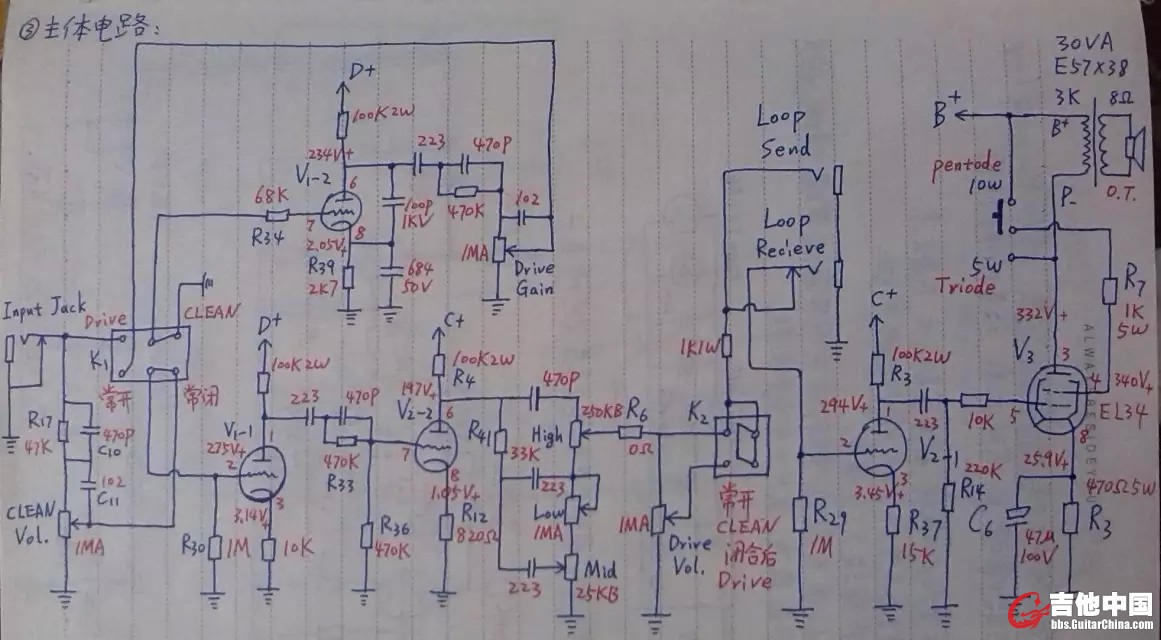 ③主体电路:
30VA
E57X38
3K
8Ω
B+
B+
P-
O.T.
pentode
10W
5W
Triode
D+
100K2W
234V+
V1-2
6
7
8
223
470P
470K
100P
1KV
102
68K
R34
2.05V+
R39
2K7
684
50V
1MA
Drive
Gain
Loop
Send
Loop
Recieve
Input Jack
Drive
CLEAN
K1
常开
常闭
R17
47K
470P
C10
102
C11
CLEAN
Vol.
1MA
D+
100K2W
V1-1
275V+
1
2
3
3.14V+
R30
1M
10K
223
470P
470K
R33
R36
470K
C+
100K2W
R4
197V+
V2-2
6
7
8
1.05V+
R12
820Ω
R41
33K
470P
250KB
High
223
Low
1MA
223
Mid
25KB
R6
0Ω
1K1W
K2
常开
CLEAN
闭合后
Drive
1MA
Drive
Vol.
R29
1M
C+
100K2W
R3
294V+
1
2
3
3.45V+
V2-1
R37
15K
223
10K
220K
R14
R7
1K
5W
332V+
V3
3
4
5
8
340V+
EL34
25.9V+
470Ω5W
R3
C6
47μ
100V
吉他中国
bbs.GuitarChina.com